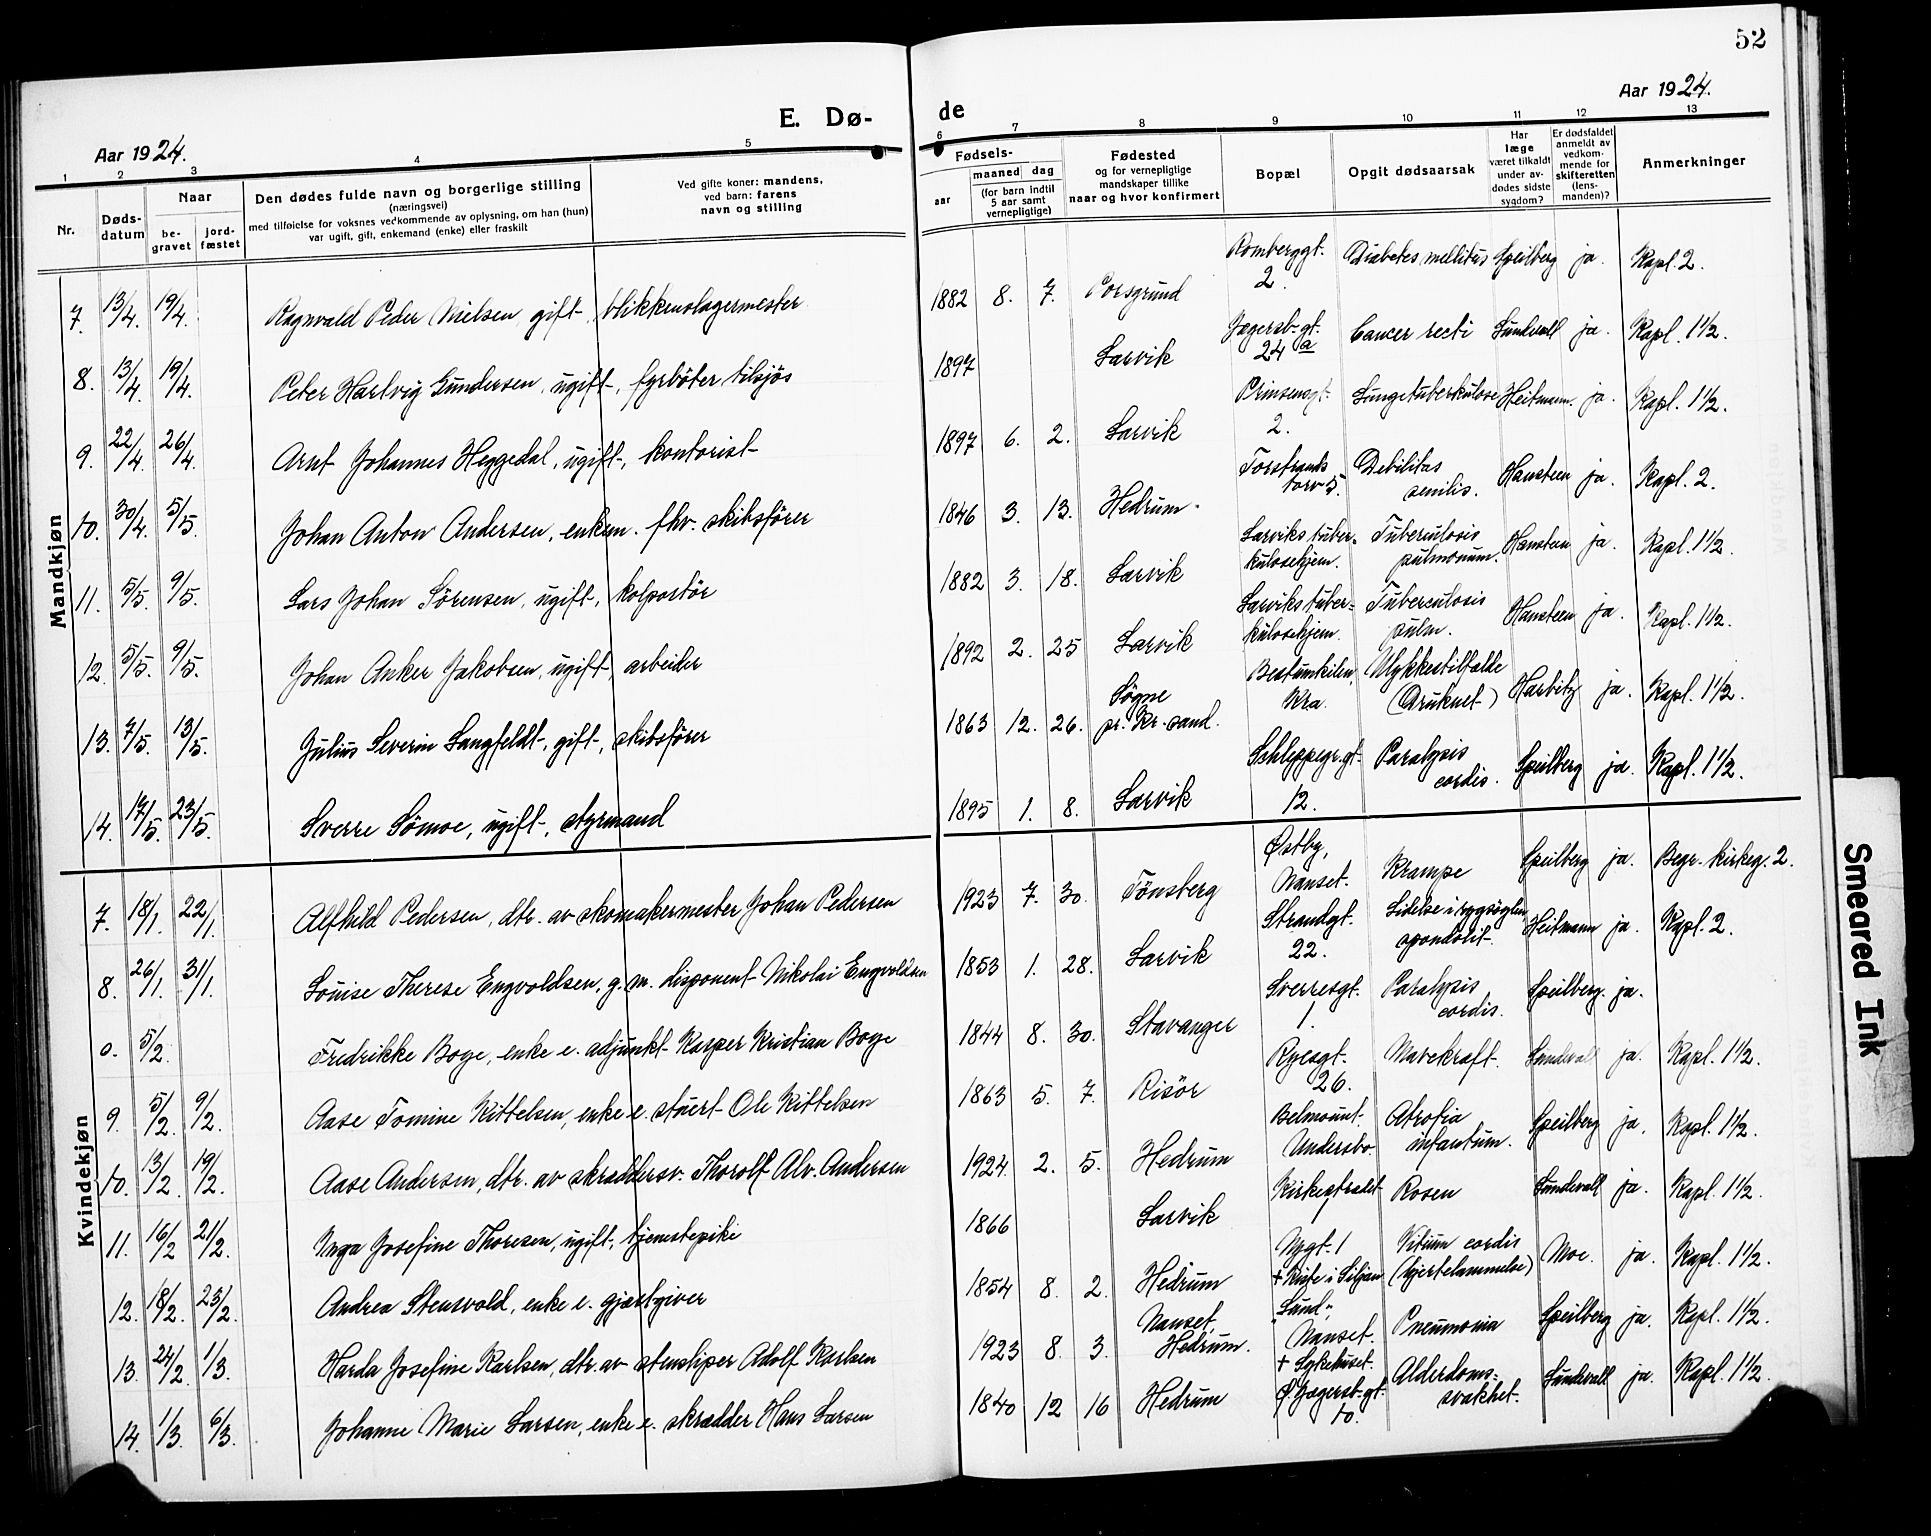 52
Aar 1924.
E. Dø-
de
Aar 1924.
1 2 3 4 5 6 7 8 9 10 11 12 13
Nr.
Døds-
datum
Naar
be-
gravet
jord-
fæstet
Den dødes fulde navn og borgerlige stilling
(næringsvei)
med tilføielse for voksnes vedkommende av oplysning, om han (hun)
var ugift, gift, enkemand (enke) eller fraskilt
Ved gifte koner: mandens,
ved barn: farens
navn og stilling
Fødsels-
aar
maaned
dag
(for barn indtil
5 aar samt
vernepligtige)
Fødested
og for vernepligtige
mandskaper tillike
naar og hvor konfirmert
Bopæl
Opgit dødsaarsak
Har
læge
været tilkaldt
under av-
dødes sidste
sygdom?
Er dødsfaldet
anmeldt av
vedkom-
mende for
skifteretten
(lens-
manden)?
Anmerkninger
Mandkjøn
7. 13/4. 19/4. Ragnvald Peder Nielsen, gift, blikkenslagermester 1882 8. 7. Porsgrund Romberggt. 2. Diabetes mellitus Speilberg ja. Kapl. 2.
8. 13/4. 19/4. Peter Hartvig Gundersen, ugift, fyrbøter tilsjøs 1897 Larvik Jegersb.gt. 24 a Cancer recti Sundvall ja. Kapl. 1 1/2.
9. 22/4. 26/4. Arnt Johannes Heggedal, ugift, kontorist 1897 6. 2. Larvik Prinsensgt. 2. Lungetuberkulose Heitmann. ja. Kapl. 1 1/2.
10. 30/4. 5/5. Johan Anton Andersen, enkem. fhv. skibsfører 1846 3. 13. Hedrum. Torstrands torv 5. Debilitas senilis. Hansteen ja. Kapl. 2.
11. 5/5. 9/5. Lars Johan Sørensen, ugift, kolportør 1882 3. 18. Larvik Larviks tuber-kulosehjem. Tuberculosis pulmonum. Hansteen ja. Kapl. 1 1/2.
12. 5/5. 9/5. Johan Anker Jakobsen, ugift, arbeider 1892 2. 25 Larvik Larviks tuber-kulosehjem. Tuberculosis pulm. Hansteen ja. Kapl. 1 1/2.
13. 7/5. 13/5. Julius Severin Langfeldt, gift, skibsfører 1863 12. 26. Søgne pr. Kr.sand. Bestumkilen, Kra. Ulykkestilfælde (Druknet) Harbitz ja. Kapl. 1 1/2.
14. 17/5. 23/5. Sverre Sømoe, ugift, styrmand 1895 1. 8. Larvik Schleppegr.gt. 12. Paralysis cordis. Speilberg ja. Kapl. 1 1/2.
Kvindekjøn
7. 18/1. 22/1. Alfhild Pedersen, dtr. av skomakermester Johan Pedersen 1923 7. 30. Tønsberg Østby, Nanset. Krampe Speilberg ja. Begr. kirkeg. 2.
8. 26/1. 31/1. Louise Therese Engvoldsen, g. m. disponent Nikolai Engvoldsen 1853 1. 28. Larvik Strandgt. 22. Lidelse i rygsøylen, spondolit. Heitmann ja. Kapl. 2.
0. 5/2. Fredrikke Boge, enke e. adjunkt Kasper Kristian Boge 1844 8. 30. Stavanger Sverresgt. 1. Paralysis cordis. Speilberg. ja.
9. 5/2. 9/2. Aase Tomine Kittelsen, enke e. stuert Ole Kittelsen 1863 5. 7. Risør Ryesgt. 26. Mavekræft. Sundvall ja. Kapl. 1 1/2.
10. 13/2. 19/2. Aase Andersen, dtr. av skræddersv. Thorolf Alv. Andersen 1924 2. 5. Hedrum Belmount. Undersbo Atrofia infantum. Speilberg ja. Kapl. 1 1/2.
11. 16/2 21/2. Inga Josefine Thoresen, ugift, tjenestepike 1866 Larvik Kirkestrædet Rosen Sundvall ja. Kapl. 1 1/2.
12. 18/2. 23/2. Andrea Stensvold, enke e. gjæstgiver 1854 8. 2. Hedrum Nygt. 1 + Kiste i Siljan Vitium cordis (hjertelammelse) Moe. ja. Kapl. 1 1/2.
13. 24/2. 1/3. Harda Josefine Karlsen, dtr. av stensliper Adolf Karlsen 1923 8. 3. Nanset, Hedrum. "Lund", Nanset. Pneumonia Speilberg ja. Kapl. 1 1/2.
14. 1/3. 6/3. Johanne Marie Larsen, enke e. skrædder Hans Larsen 1840 12 16 Hedrum + Sykehuset. Jegersb.gt. 10. Alderdoms-svakhet. Sundvall ja. Kapl. 1 1/2.
Smeared Ink